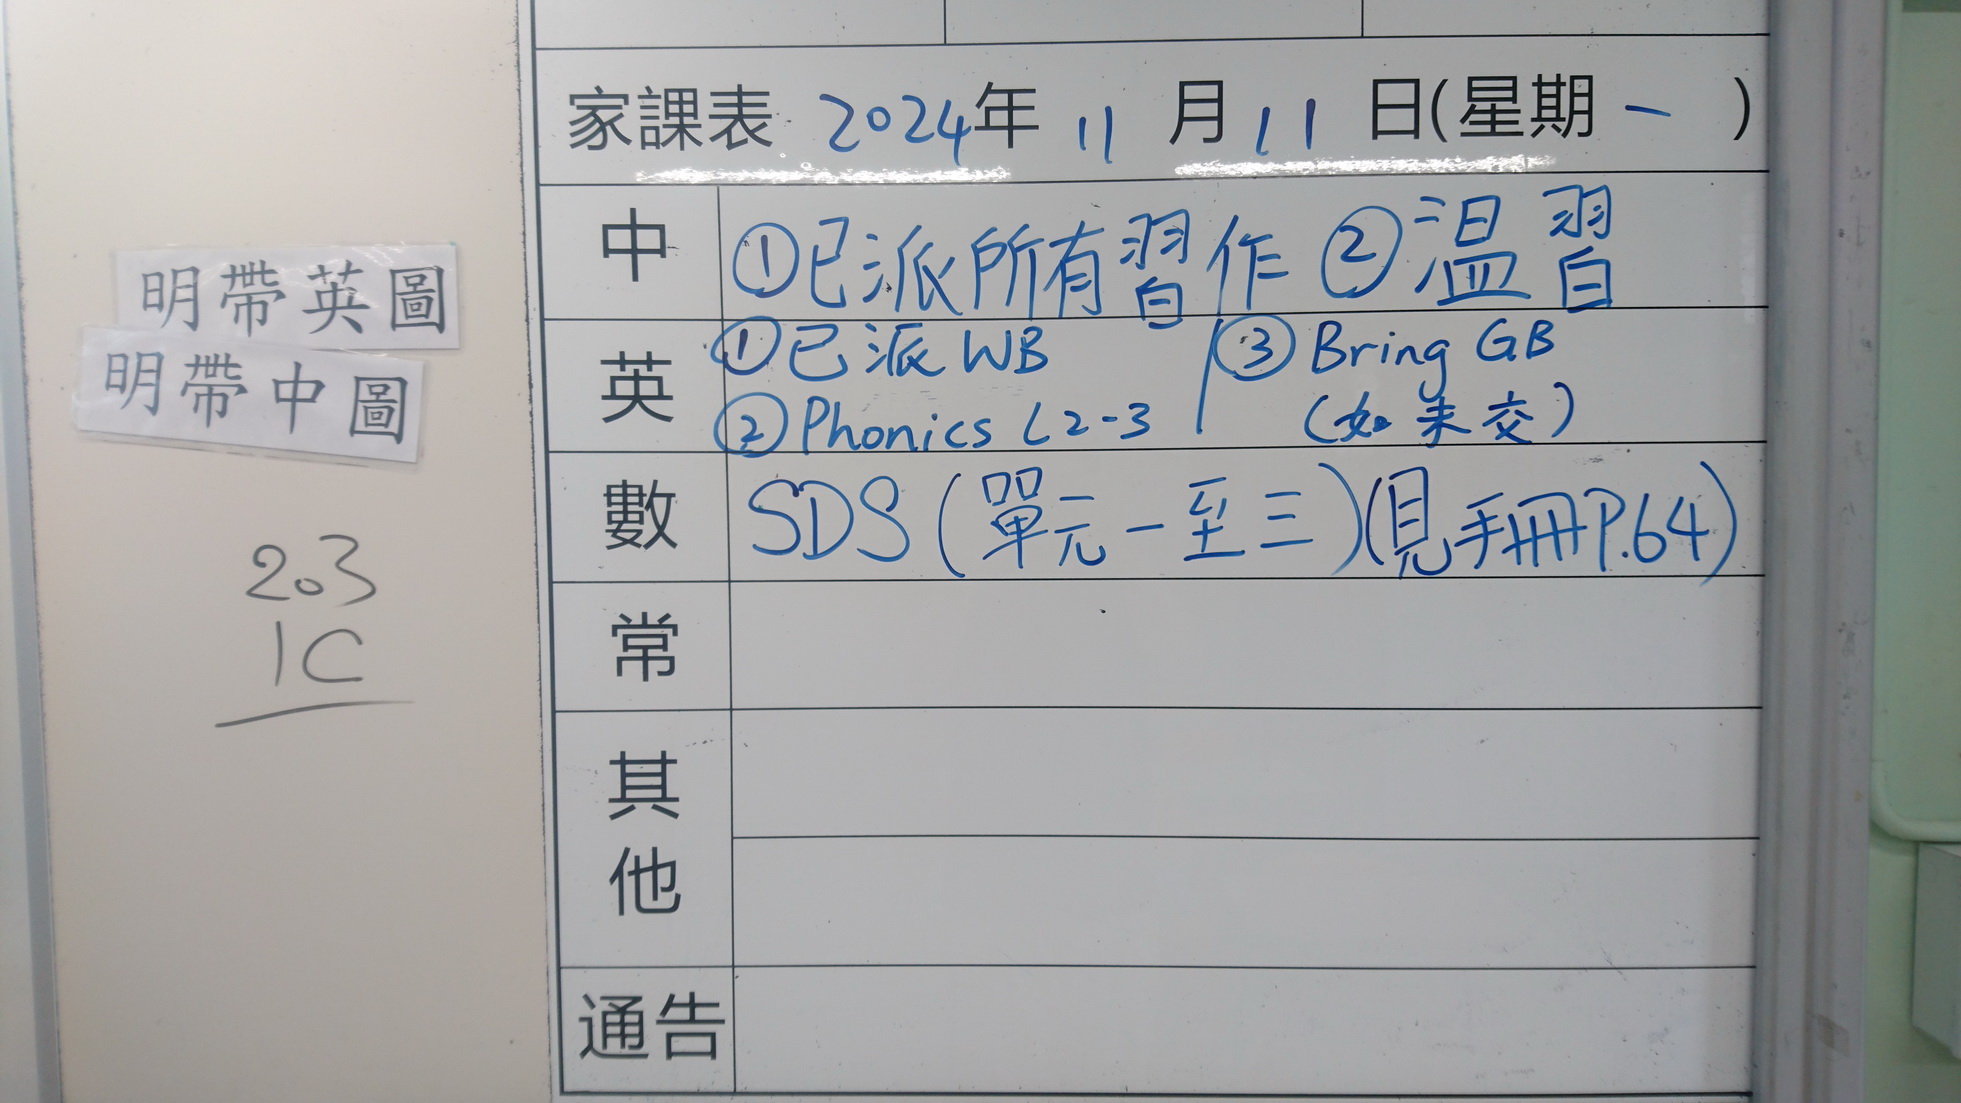 明帶英圖
明帶中圖
203
1C
家課表 2024年 11 月 11 日(星期一 )
中 ①已派所有習作 ②溫習
英 ①已派 WB ③ Bring GB
②Phonics L2-3 (如未交)
數 SDS (單元一至三)(見手冊P.64)
常
其他
通告